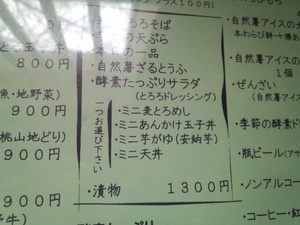 100円)
ミニとろろそば
の天ぷら
本日の一品
・自然薯ざるとうふ
・酵素たっぷりサラダ
(とろろドレッシング)
一つお選び下さい
・ミニ麦とろめし
・ミニあんかけ玉子丼
・ミニ芋がゆ(安納芋)
・ミニ天丼
・漬物
1300円
と玉子丼
800円
魚・地野菜)
900円
桃山地どり)
900円
900円
・自然薯アイスの
本わらび餅・十勝
・自然薯アイスの
1個
・ぜんざい
(自然薯アイス
・季節の酵素ド
・瓶ビール(アサ
・ノンアルコー
・コーヒー・紅